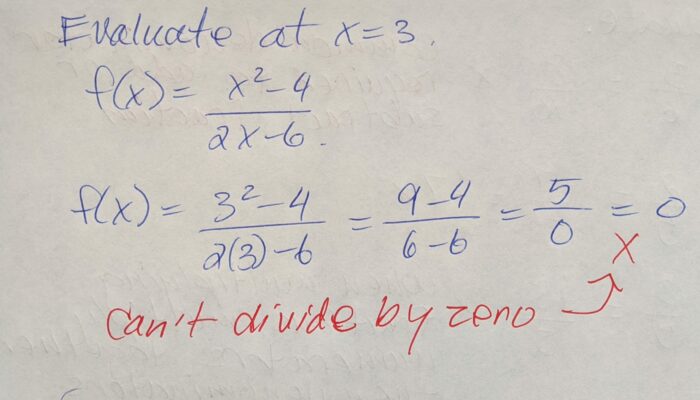 Evaluate at x=3.
f(x) = x²-4 / 2x-6.
f(x) = 3²-4 / 2(3)-6 = 9-4 / 6-6 = 5 / 0 = 0
X
can't divide by zero